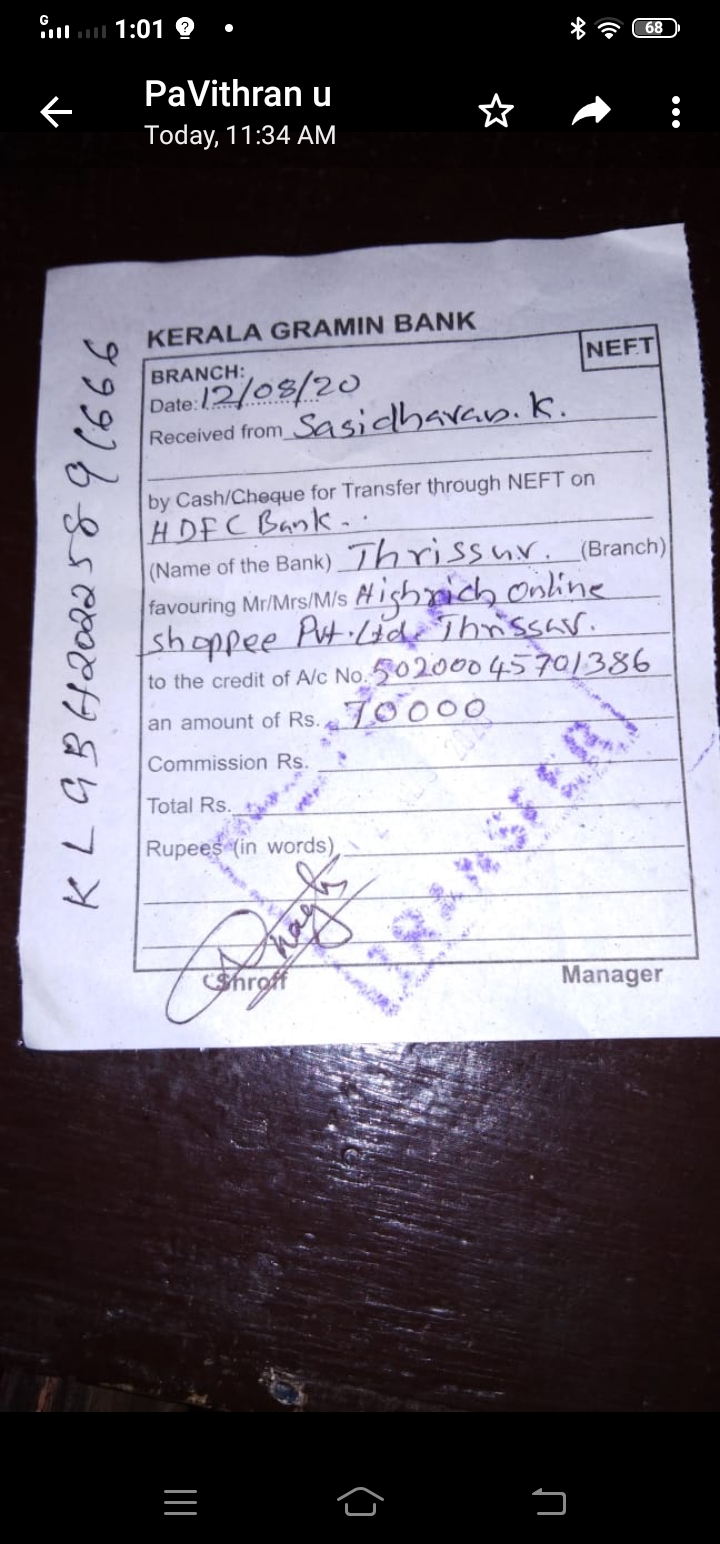 G 1:01 68
PaVithran u
Today, 11:34 AM
KERALA GRAMIN BANK
NEFT
BRANCH:
Date: 12/08/20
Received from Sasidharan. K.
by Cash/Cheque for Transfer through NEFT on
HDFC Bank..
(Name of the Bank) Thrissur. (Branch)
favouring Mr/Mrs/M/s Highrich Online
shoppee Pvt.Ltd. Thrissur.
to the credit of A/c No. 50200045701386
an amount of Rs. 70000
Commission Rs.
Total Rs.
Rupees (in words)
Shroff Manager
TRANSFER